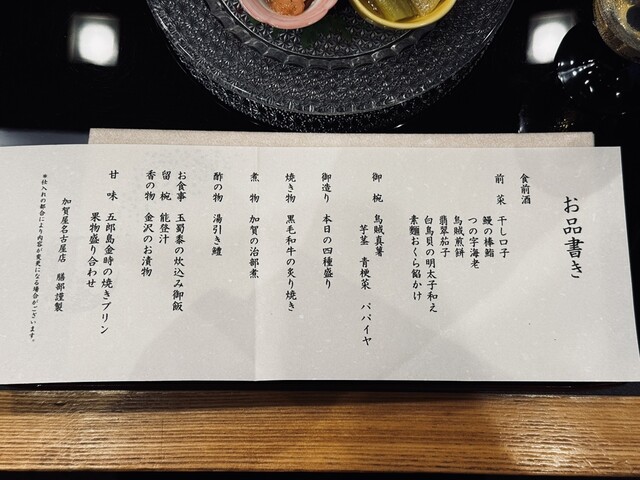 お品書き
食前酒
前菜 干し口子
鰻の棒鮨
つの字海老
烏賊煎餅
翡翠茄子
白鳥貝の明太子和え
素麺おくら餡かけ
御椀 烏賊真薯
芋茎 青梗菜 パパイヤ
御造り 本日の四種盛り
焼き物 黒毛和牛の炙り焼き
煮物 加賀の治部煮
酢の物 湯引き鱧
お食事 玉蜀黍の炊込み御飯
留椀 能登汁
香の物 金沢のお漬物
甘味 五郎島金時の焼きプリン
果物盛り合わせ
加賀屋名古屋店 膳部謹製
*仕入れの都合により内容が変更になる場合がございます。